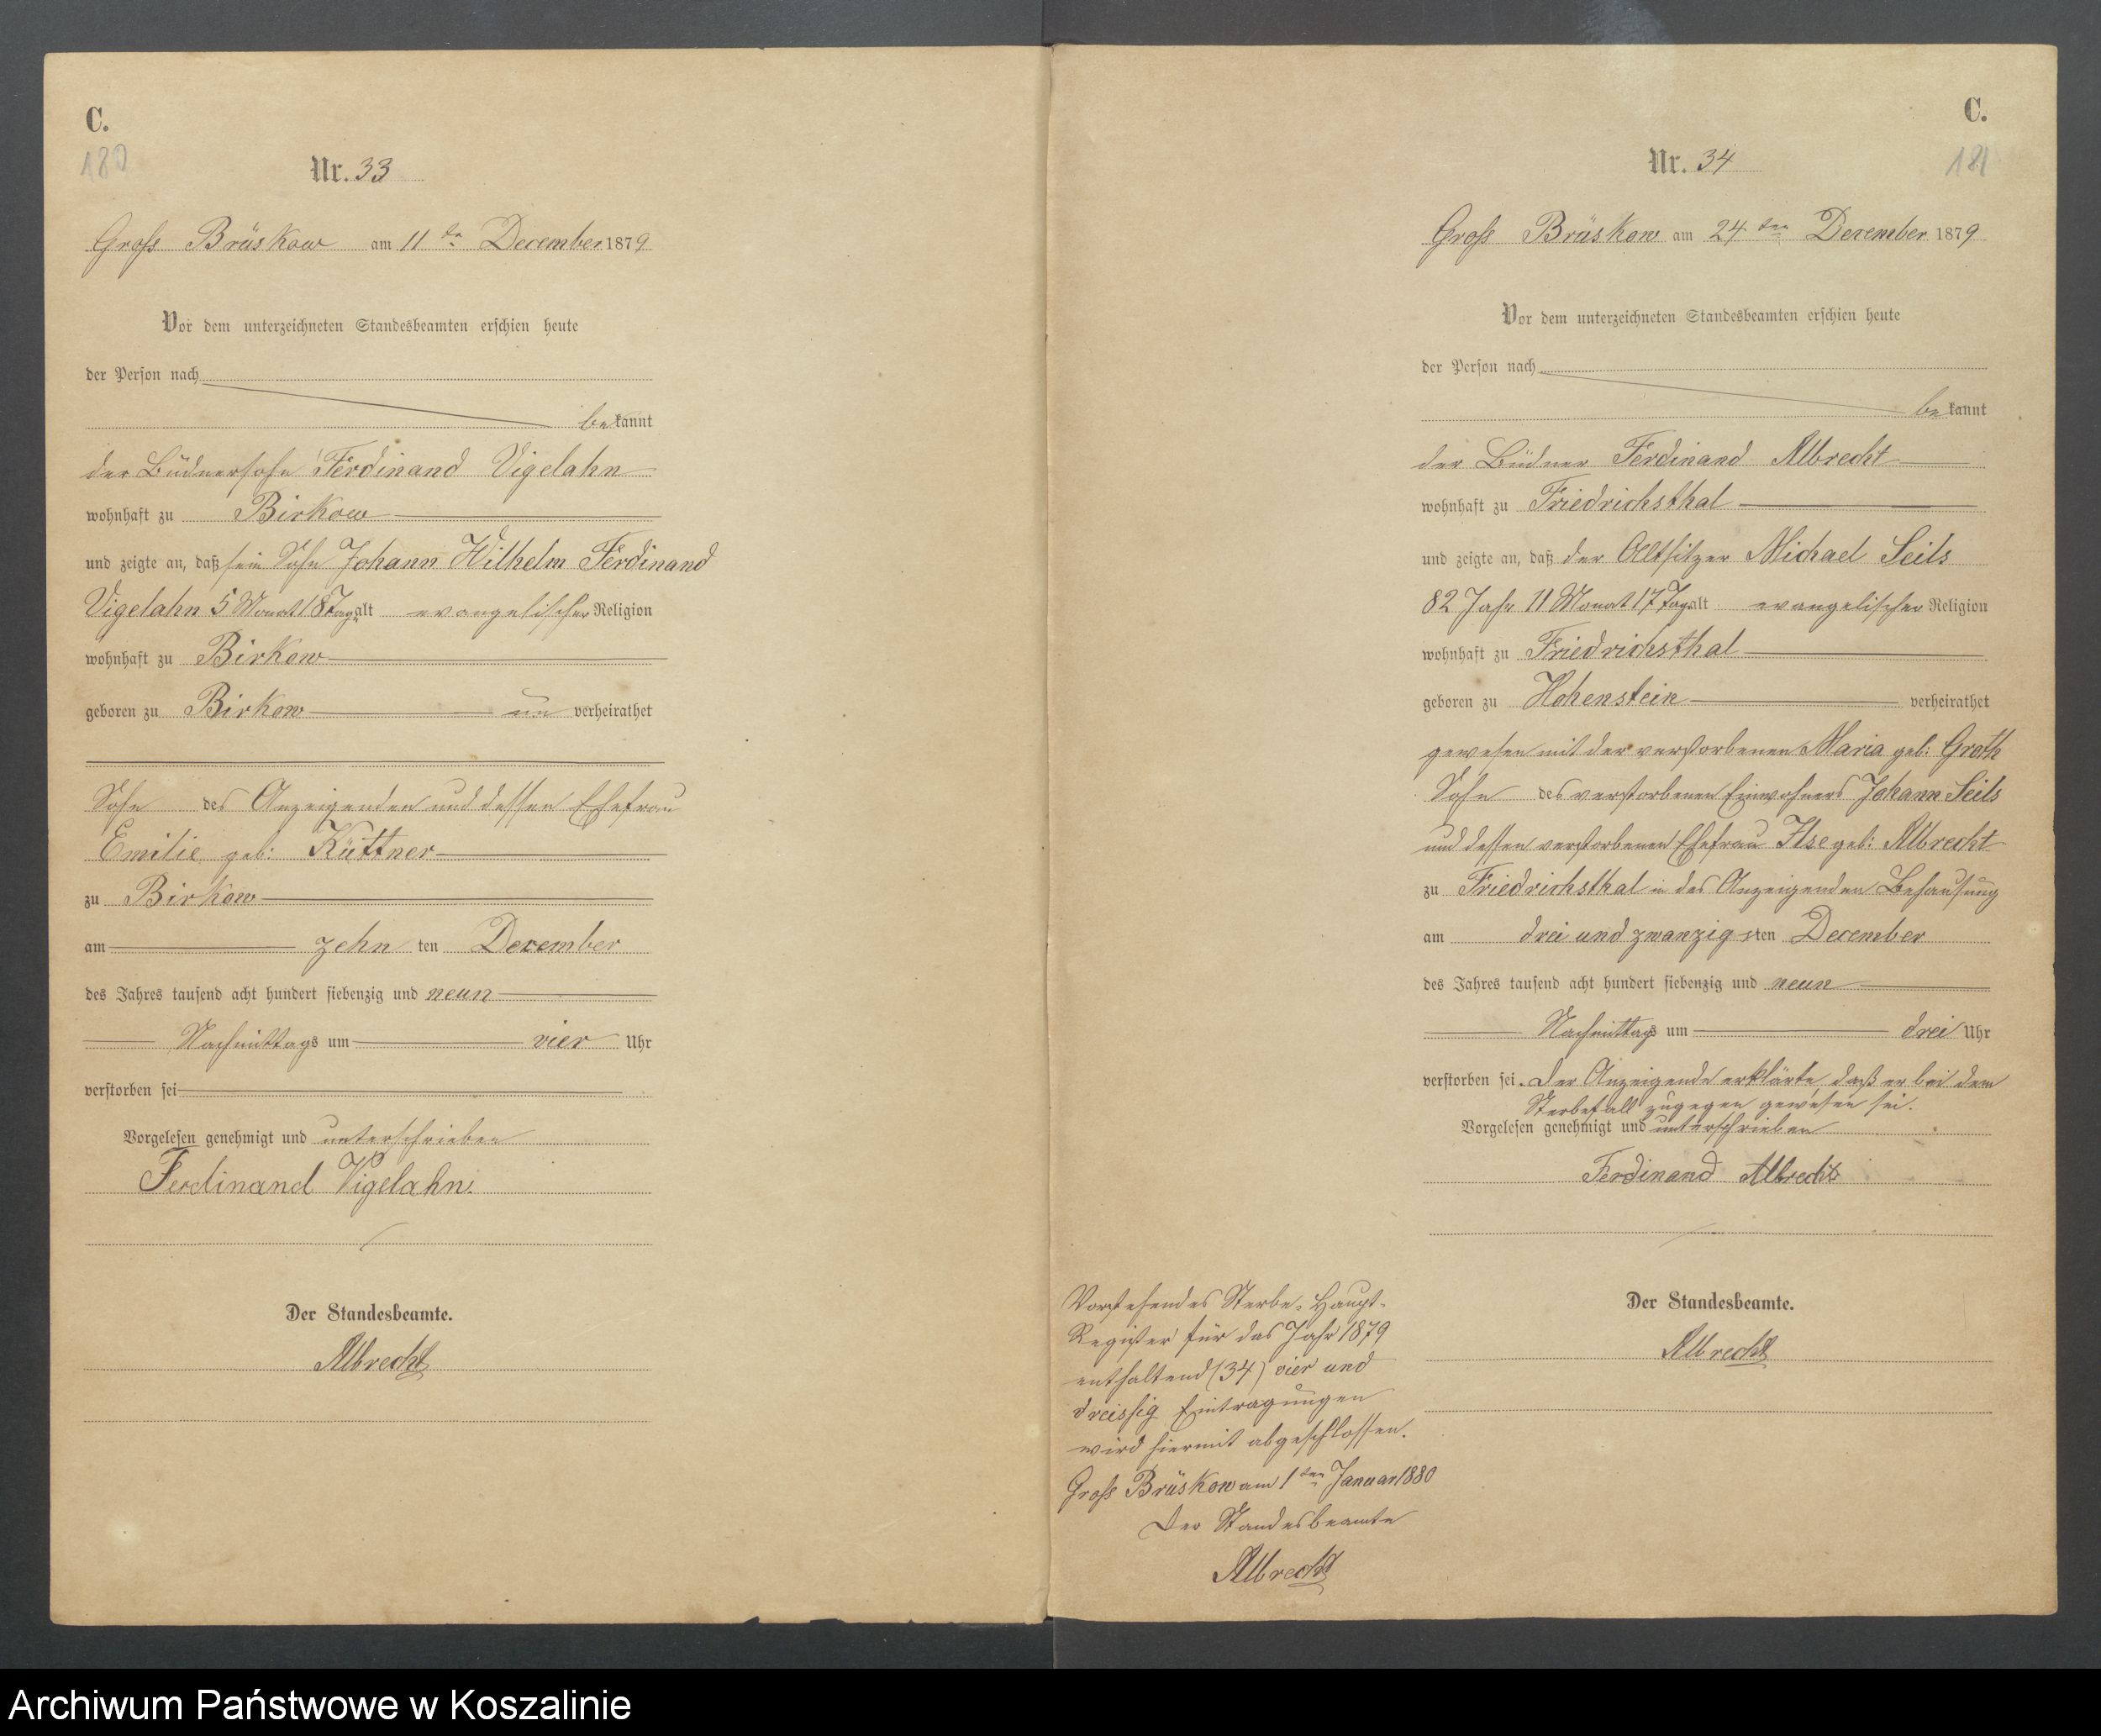 C.
180
Nr. 33
Gross Brüskow am 11ten December 1879
Vor dem unterzeichneten Standesbeamten erschien heute
der Person nach
bekannt
der Büdnersohn Ferdinand Vigelahn
wohnhaft zu Birkow
und zeigte an, daß sein Sohn Johann Wilhelm Ferdinand
Vigelahn 5 Monat 18 Tage alt evangelischer Religion
wohnhaft zu Birkow
geboren zu Birkow un verheirathet
Sohn des Anzeigenden und dessen Ehefrau
Emilie geb: Küttner
zu Birkow
am zehn ten December
des Jahres tausend acht hundert siebenzig und neun
Nachmittags um vier Uhr
verstorben sei
Vorgelesen genehmigt und unterschrieben
Ferdinand Vigelahn.
Der Standesbeamte.
Albrecht
C.
181
Nr. 34
Gross Brüskow am 24ten December 1879
Vor dem unterzeichneten Standesbeamten erschien heute
der Person nach
bekannt
der Büdner Ferdinand Albrecht
wohnhaft zu Friedrichsthal
und zeigte an, daß der Altsitzer Michael Seils
82 Jahr 11 Monat 17 Tage alt evangelischer Religion
wohnhaft zu Friedrichsthal
geboren zu Hohenstein verheirathet
gewesen mit der verstorbenen Maria geb: Groth
Sohn des verstorbenen Einwohners Johann Seils
und dessen verstorbenen Ehefrau Ilse geb: Albrecht
zu Friedrichsthal in des Anzeigenden Behausung
am drei und zwanzig sten December
des Jahres tausend acht hundert siebenzig und neun
Nachmittags um drei Uhr
verstorben sei. Der Anzeigende erklärte, daß er bei dem
Sterbefall zugegen gewesen sei.
Vorgelesen genehmigt und unterschrieben
Ferdinand Albrecht
Der Standesbeamte.
Albrecht
Vorstehendes Sterbe-Haupt-
Register für das Jahr 1879
enthaltend (34) vier und
dreissig Eintragungen
wird hiermit abgeschlossen.
Gross Brüskow am 1ten Januar 1880
Der Standesbeamte
Albrecht
Archiwum Państwowe w Koszalinie